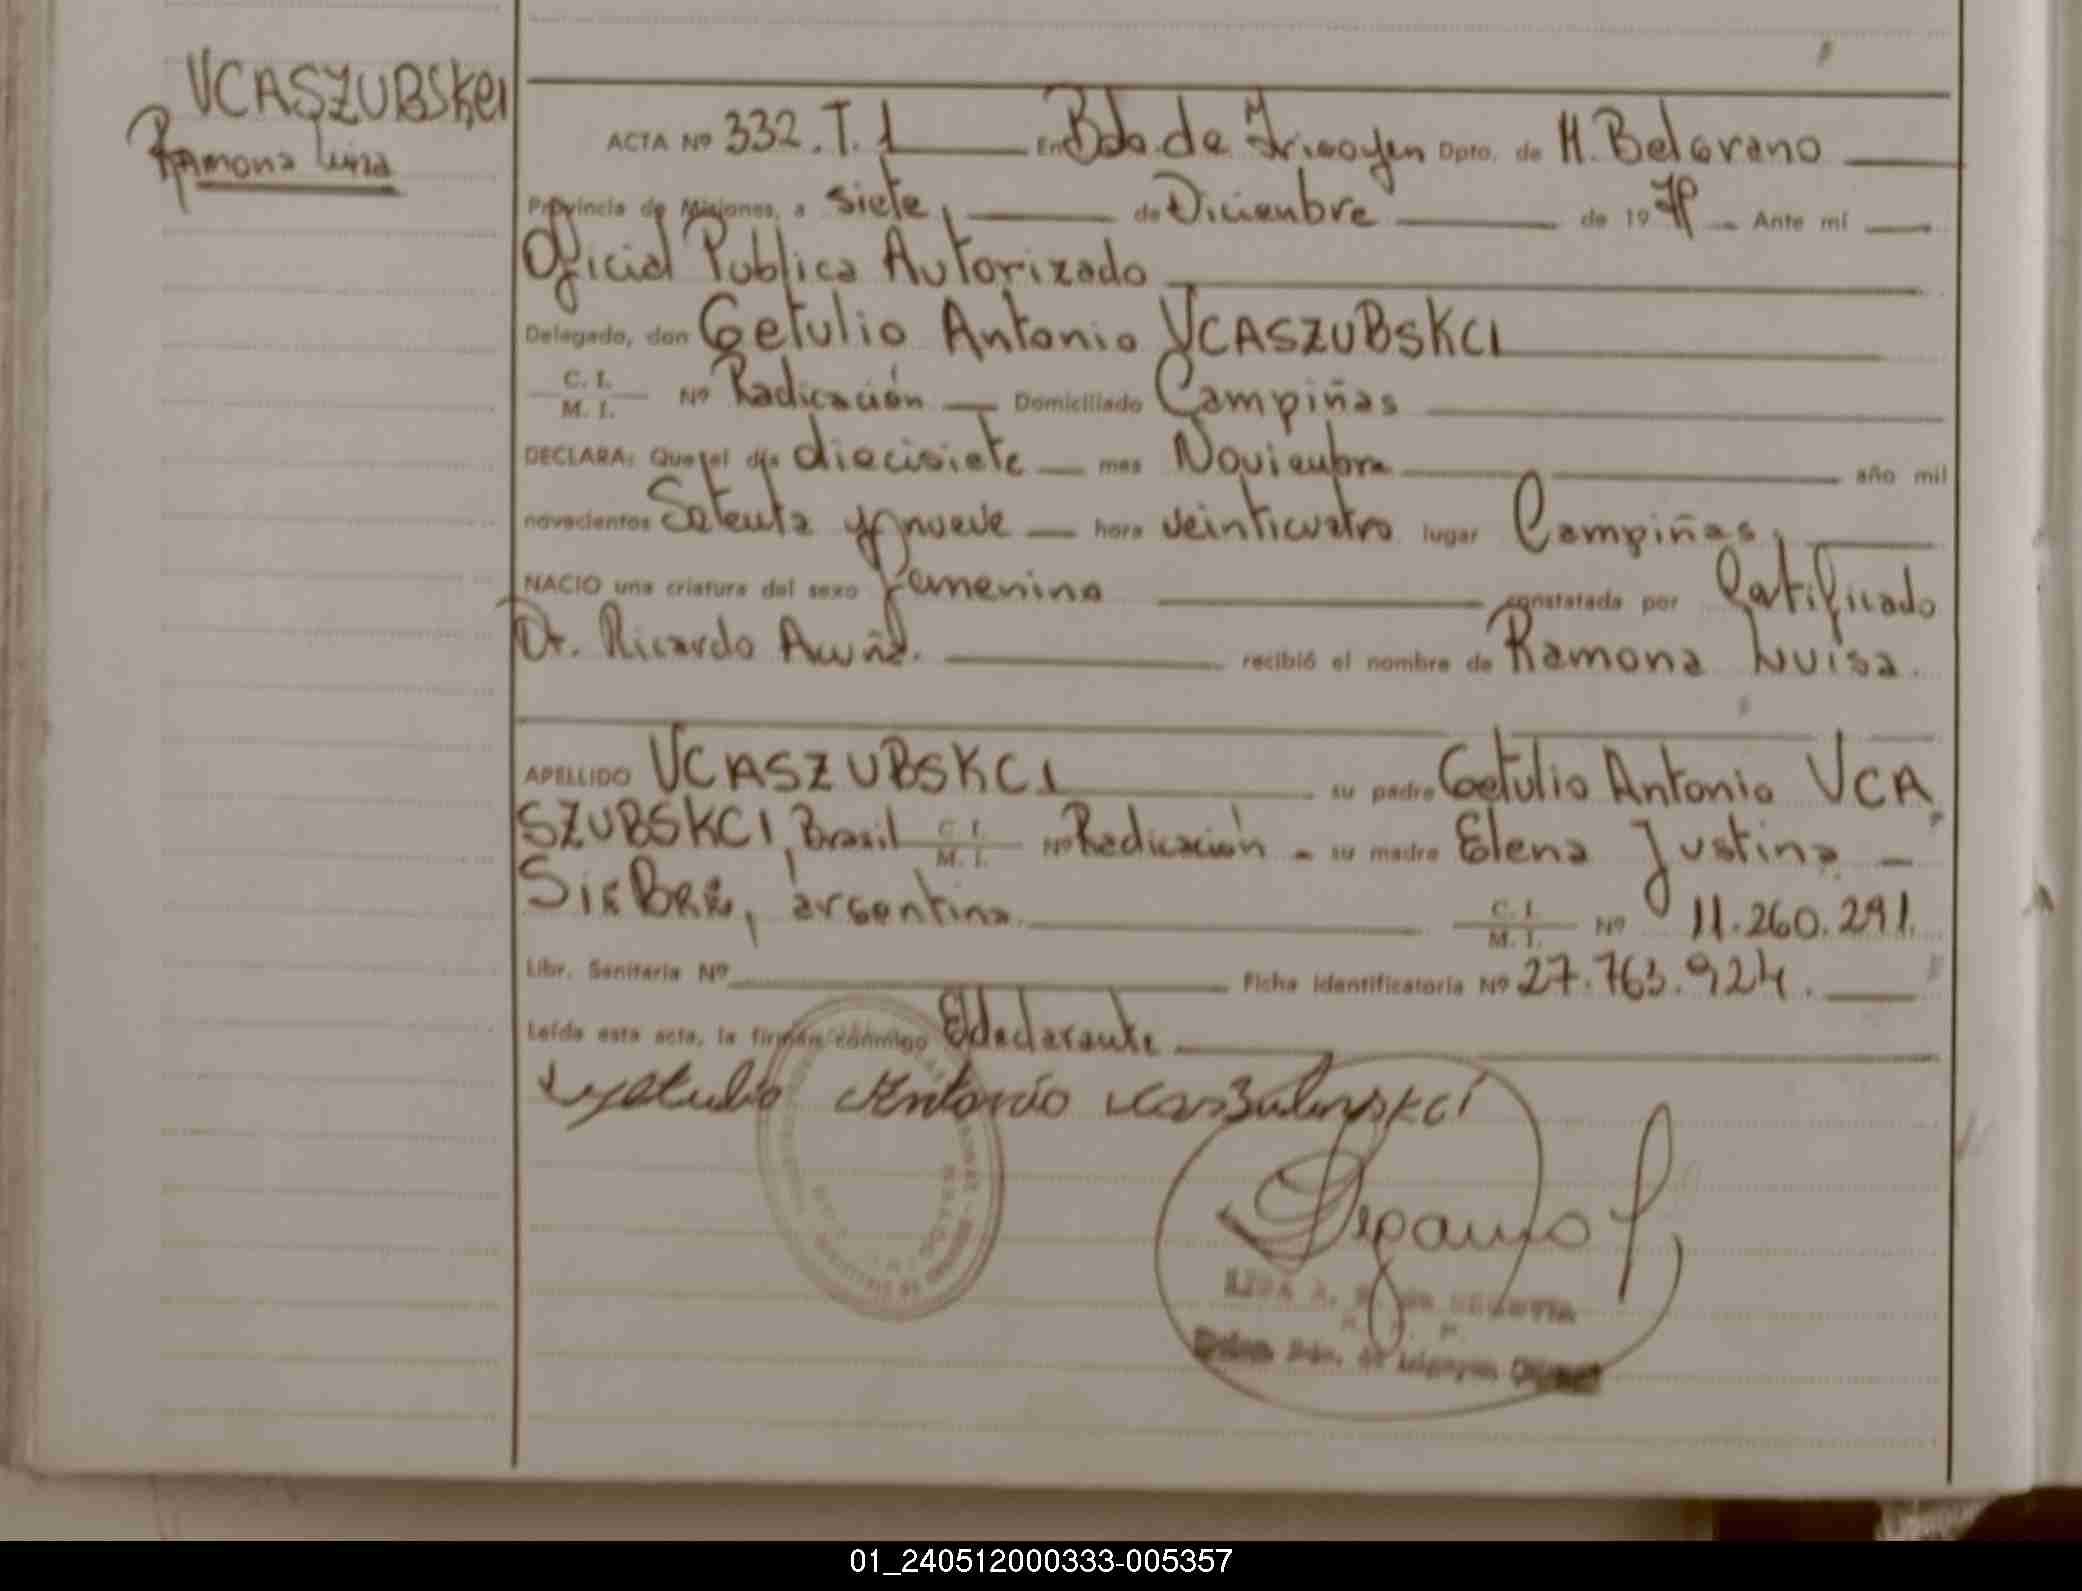 VCASZUBSKCI
Ramona Luisa
ACTA Nº 332. T. 1 En Bdo. de Irigoyen Dpto. de M. Belgrano
Provincia de Misiones, a siete, de Diciembre de 1979 Ante mí
Oficial Publica Autorizado
Delegado, don Getulio Antonio VCASZUBSKCI
C. I.
M. I. Nº Radicación Domiciliado Campiñas
DECLARA: Que el día diecisiete mes Noviembre año mil
novecientos Setenta y nueve hora veinticuatro lugar Campiñas,
NACIO una criatura del sexo femenino constatada por Certificado
Dr. Ricardo Acuña. recibió el nombre de Ramona Luisa.
APELLIDO VCASZUBSKCI su padre Getulio Antonio VCA
SZUBSKCI, Brasil C. I. M. I. Nº Radicación - su madre Elena Justina -
argentina. C. I. M. I. Nº 11.260.291.
Libr. Sanitaria Nº Ficha Identificatoria Nº 27.763.924.
Leída esta acta, la firman conmigo El declarante
Getulio Antonio Vcaszubskci
01_240512000333-005357